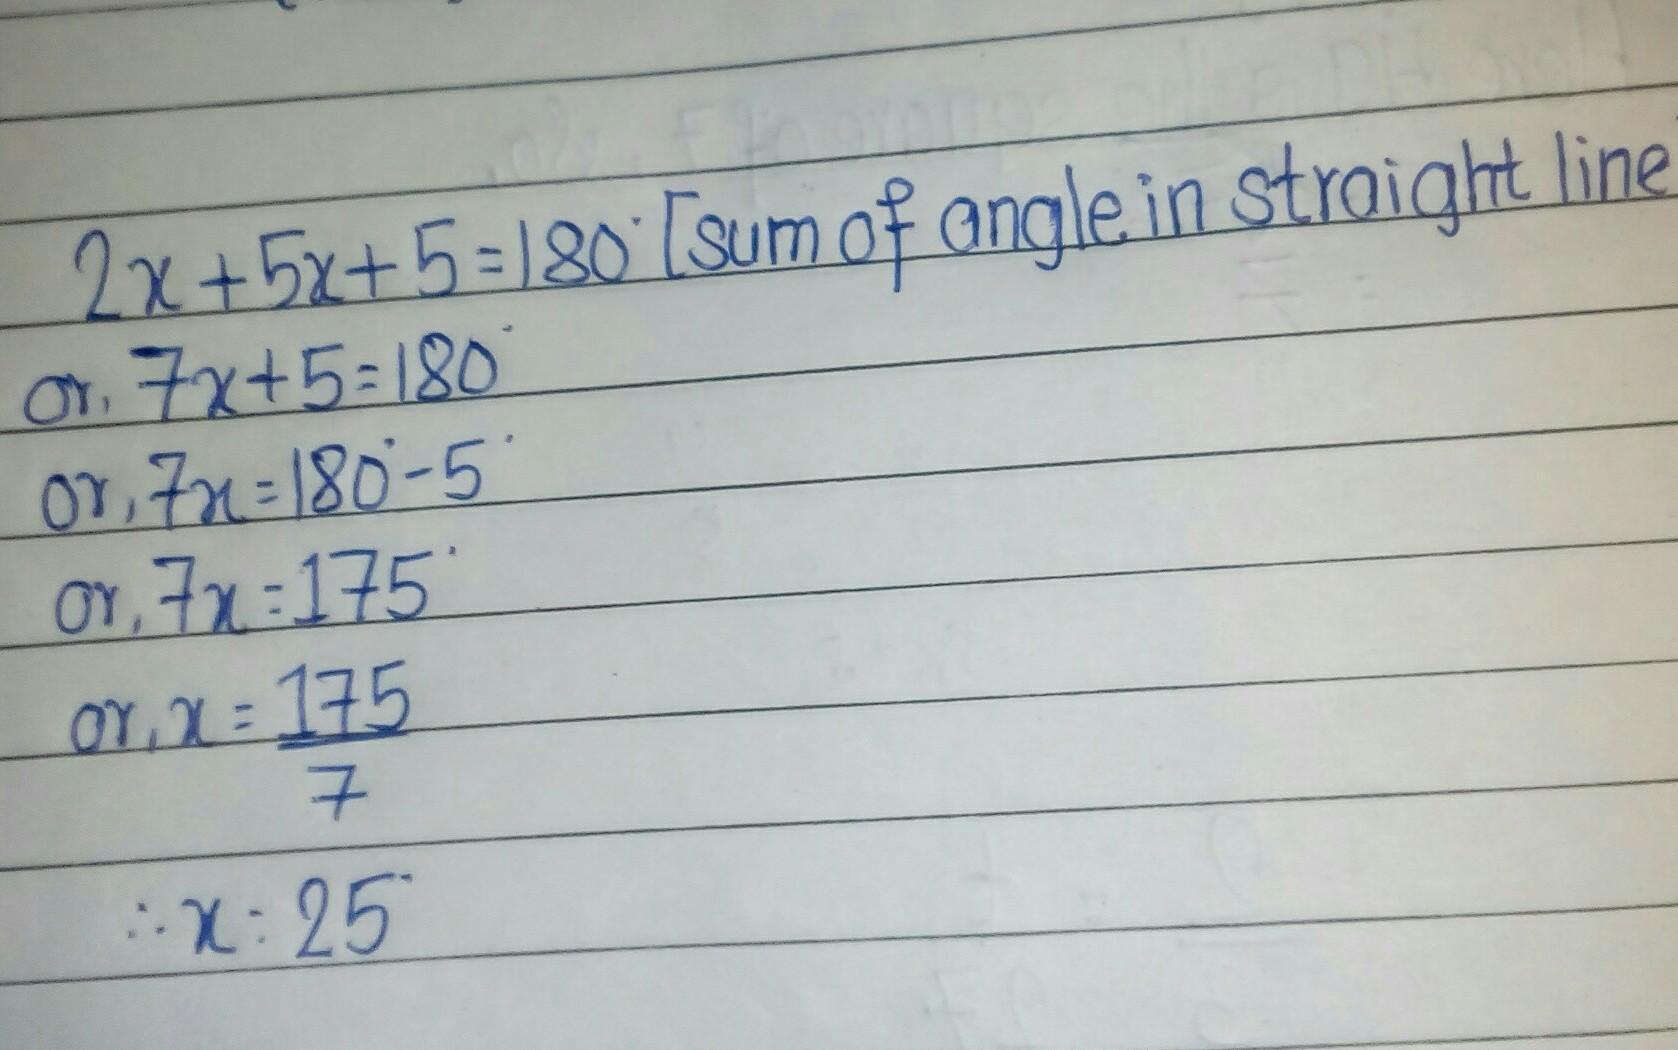 2x+5x+5=180° [sum of angle in straight line
or, 7x+5=180°
or, 7x=180°-5°
or, 7x=175°
or, x = 175
7
∴ x = 25°